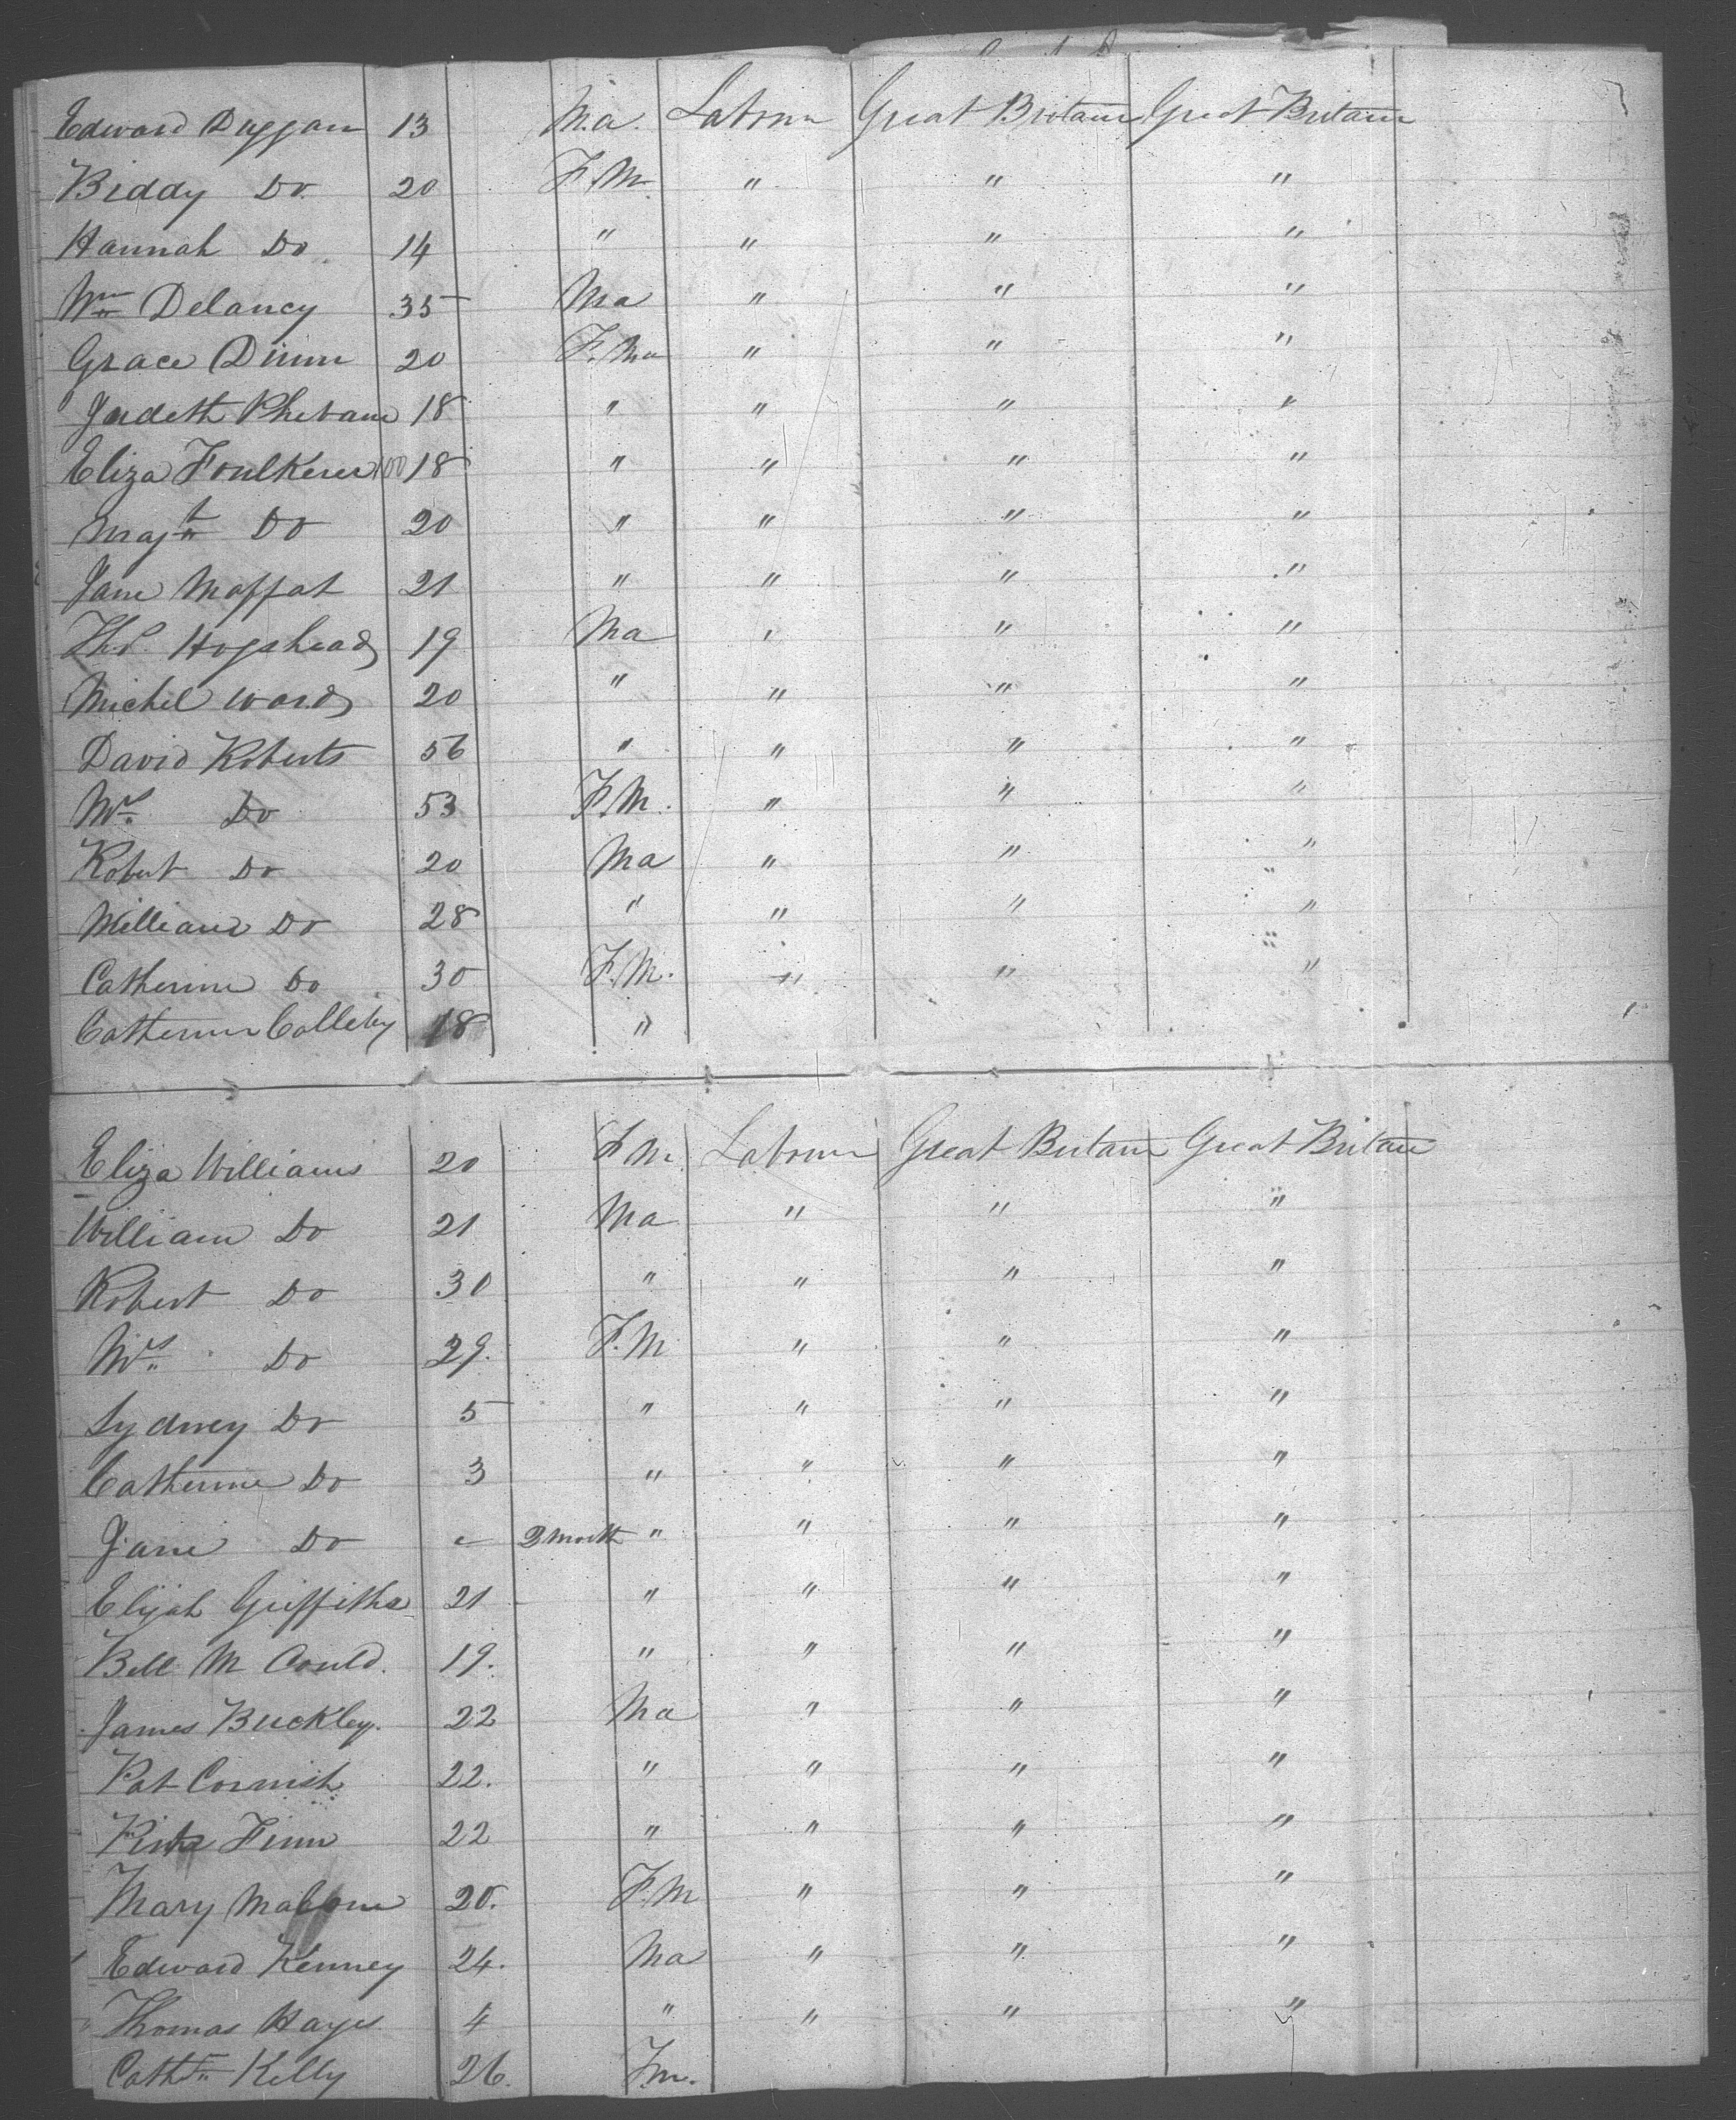 Edward Duggan 13 Ma. Labour Great Britain Great Britain
Biddy Do 20 F.M. " " "
Hannah Do. 14 " " " "
Wm Delancy 35 Ma " " "
Grace Dunn 20 F.Ma " " "
Judeth 18 " " " "
Eliza Foulkener 100 18 " " " "
Magt Do 20 " " " "
Jane Moffat 21 " " " "
Thos. Hogshead 19 Ma " " "
Michel Ward 20 " " " "
David Roberts 56 " " " "
Mrs Do 53 F.M. " " "
Robert Do 20 Ma " " "
William Do 28 " " " "
Catherine Do 30 F.M. " " "
Catherine 18 "
Eliza Williams 20 F.M. Labour Great Britain Great Britain
William Do 21 Ma " " "
Robert Do 30 " " " "
Mrs Do 29. F.M " " "
Sydney Do 5 " " " "
Catherine Do 3 " " " "
Jane Do - 3 month " " " "
Elijah Griffiths 21 " " " "
Bell M Could. 19. " " " "
James Buckley. 22 Ma " " "
Pat Cornish 22. " " " "
Finn 22 " " " "
Mary Malone 20. F.M " " "
Edward Kenney 24. Ma " " "
Thomas Hayes 4 " " " "
Cathne Kelly 26. Fm.